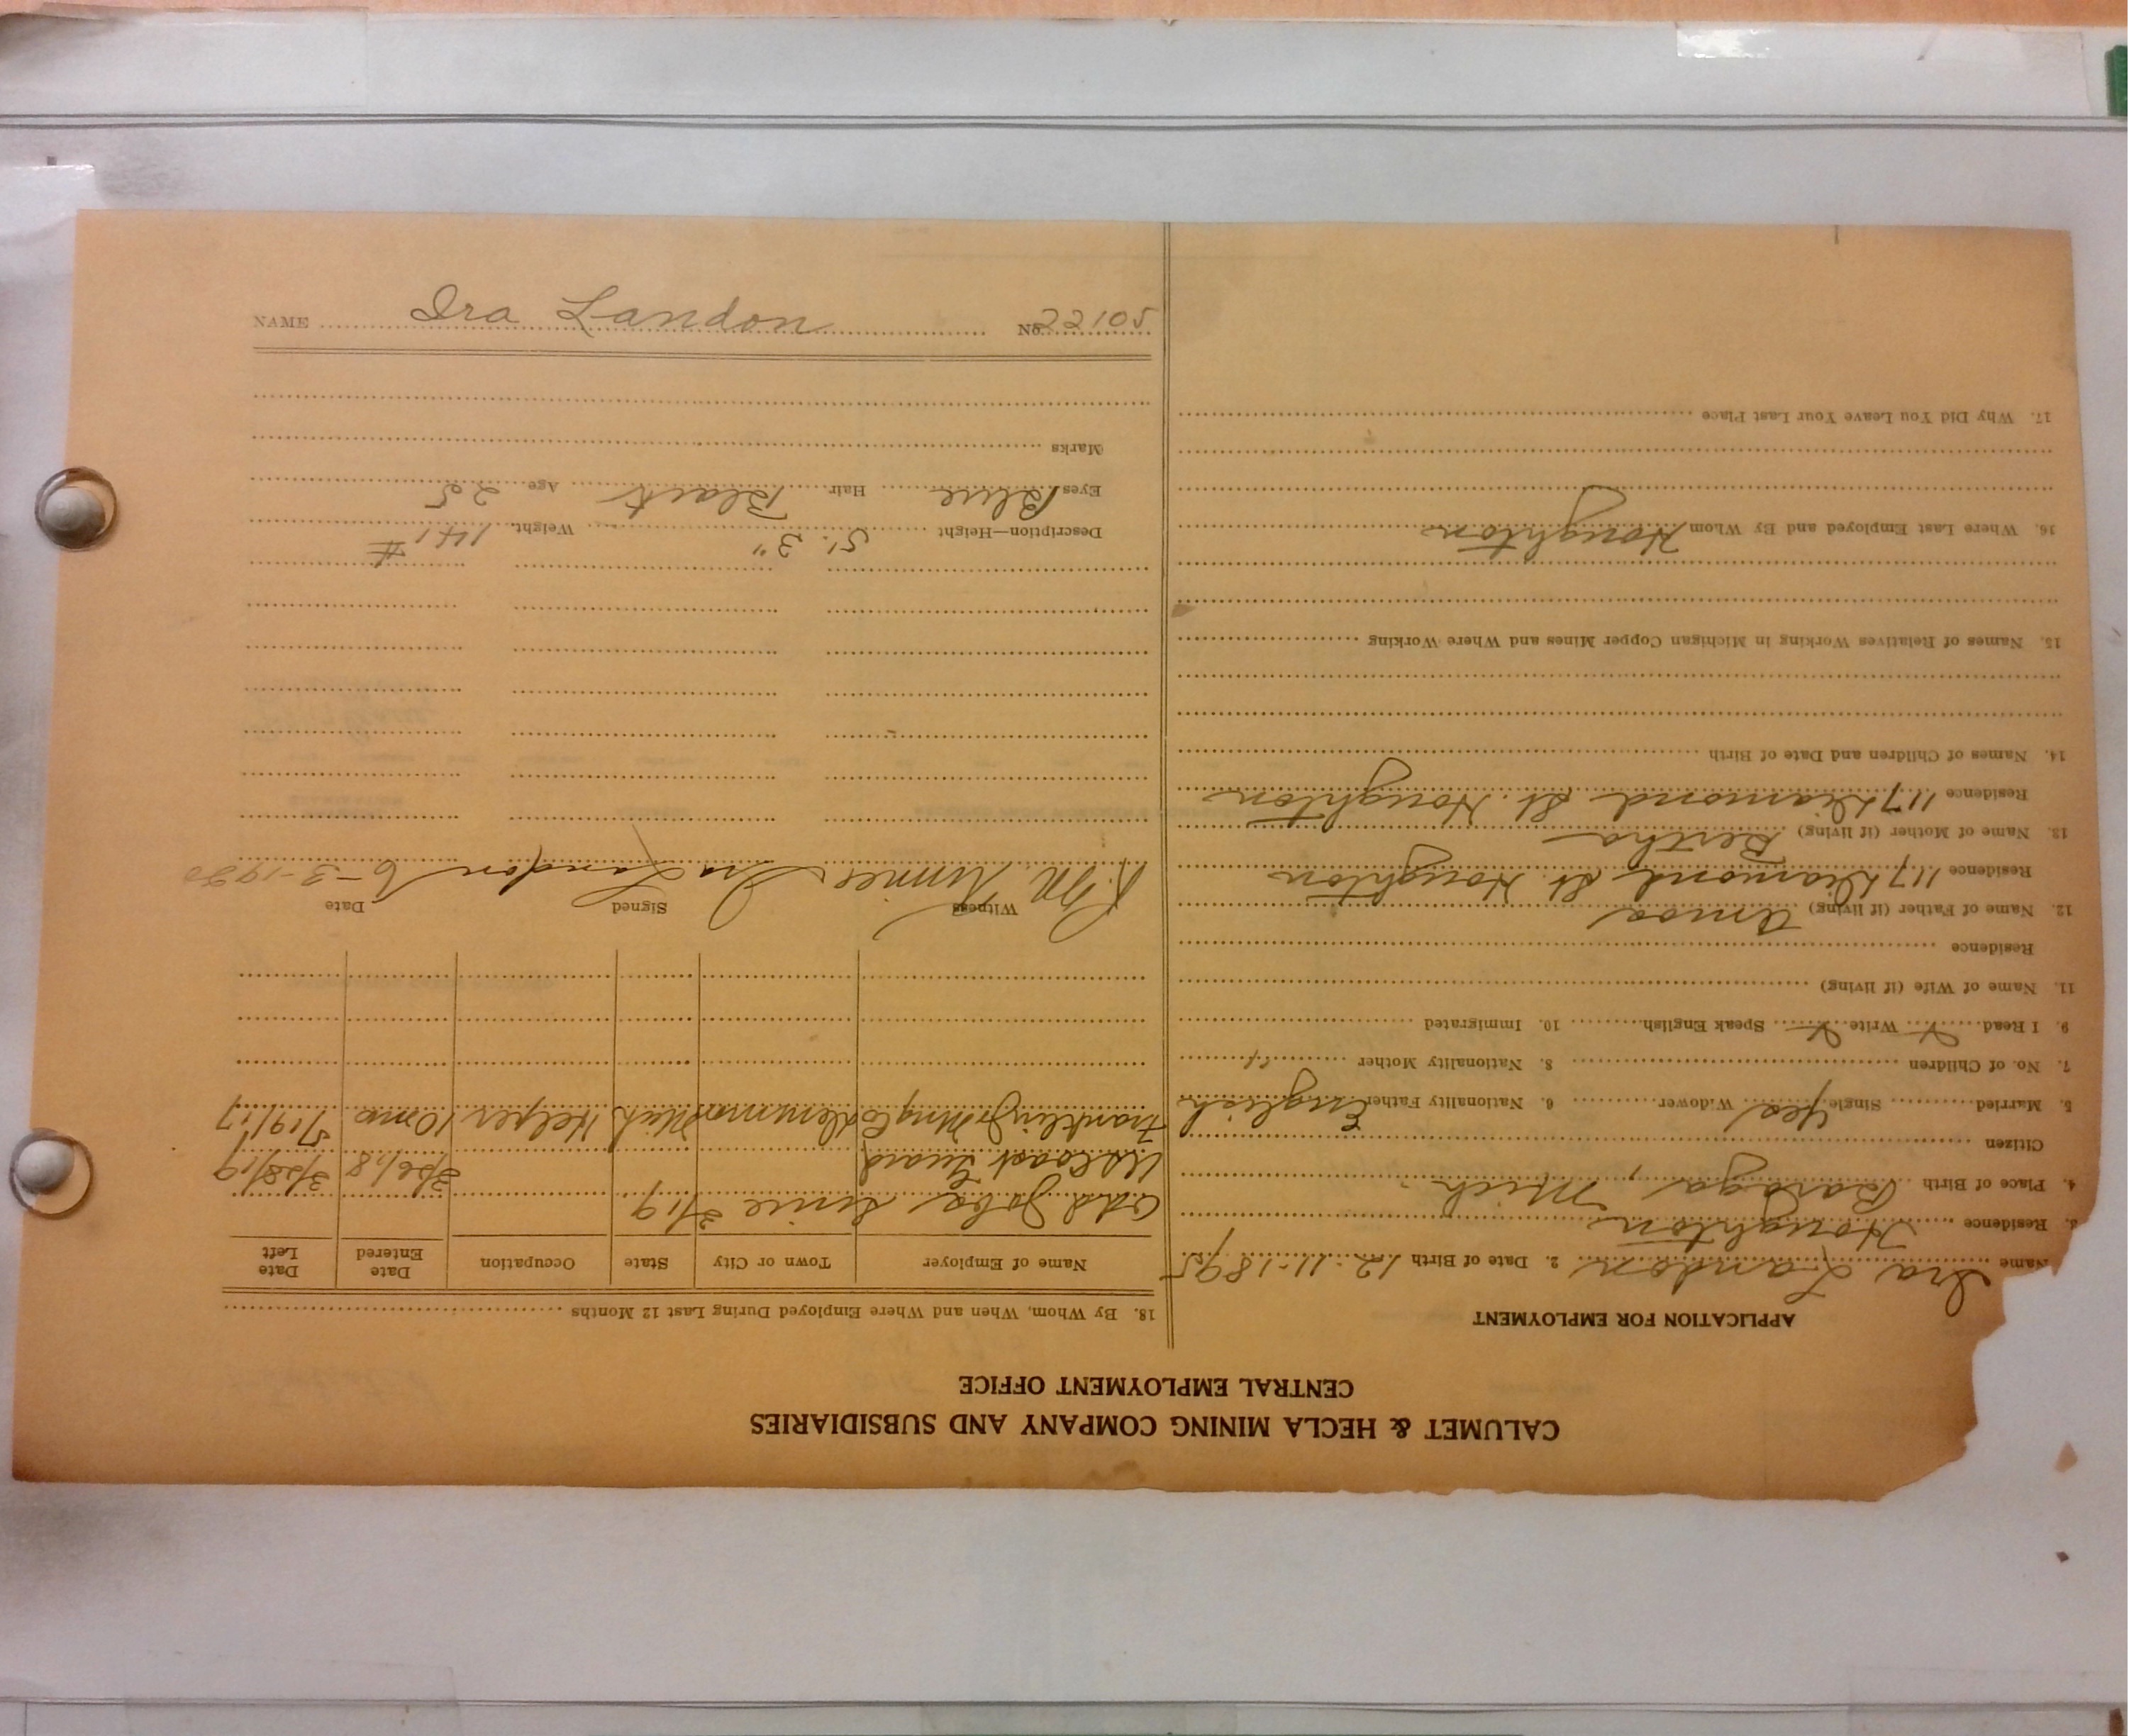 CALUMET & HECLA MINING COMPANY AND SUBSIDIARIES
CENTRAL EMPLOYMENT OFFICE
APPLICATION FOR EMPLOYMENT
Name Ira Landon 2. Date of Birth 12-11-1895
3. Residence Houghton
4. Place of Birth Baraga, Mich.
Citizen
5. Married Single yes Widower 6. Nationality Father English
7. No. of Children 8. Nationality Mother "
9. I Read Write Speak English 10. Immigrated
11. Name of Wife (if living)
Residence
12. Name of Father (if living) Amos
Residence 117 Diamond St. Houghton
13. Name of Mother (if living) Bertha
Residence 117 Diamond St. Houghton
14. Names of Children and Date of Birth
15. Names of Relatives Working in Michigan Copper Mines and Where Working
16. Where Last Employed and By Whom Houghton
17. Why Did You Leave Your Last Place
18. By Whom, When and Where Employed During Last 12 Months
Name of Employer Town or City State Occupation Date Entered Date Left
Odd Jobs since 3/19
US Coast Guard 3/26/18 3/28/19
Franklin Jr Mng Co Mich Helper 10 mo 5/19/17
Witness Signed Date
R.M. Ira Landon 6-3-1920
Description—Height 5'. 3" Weight 141 #
Eyes Blue Hair Black Age 25
Marks
NAME Ira Landon No. 22105